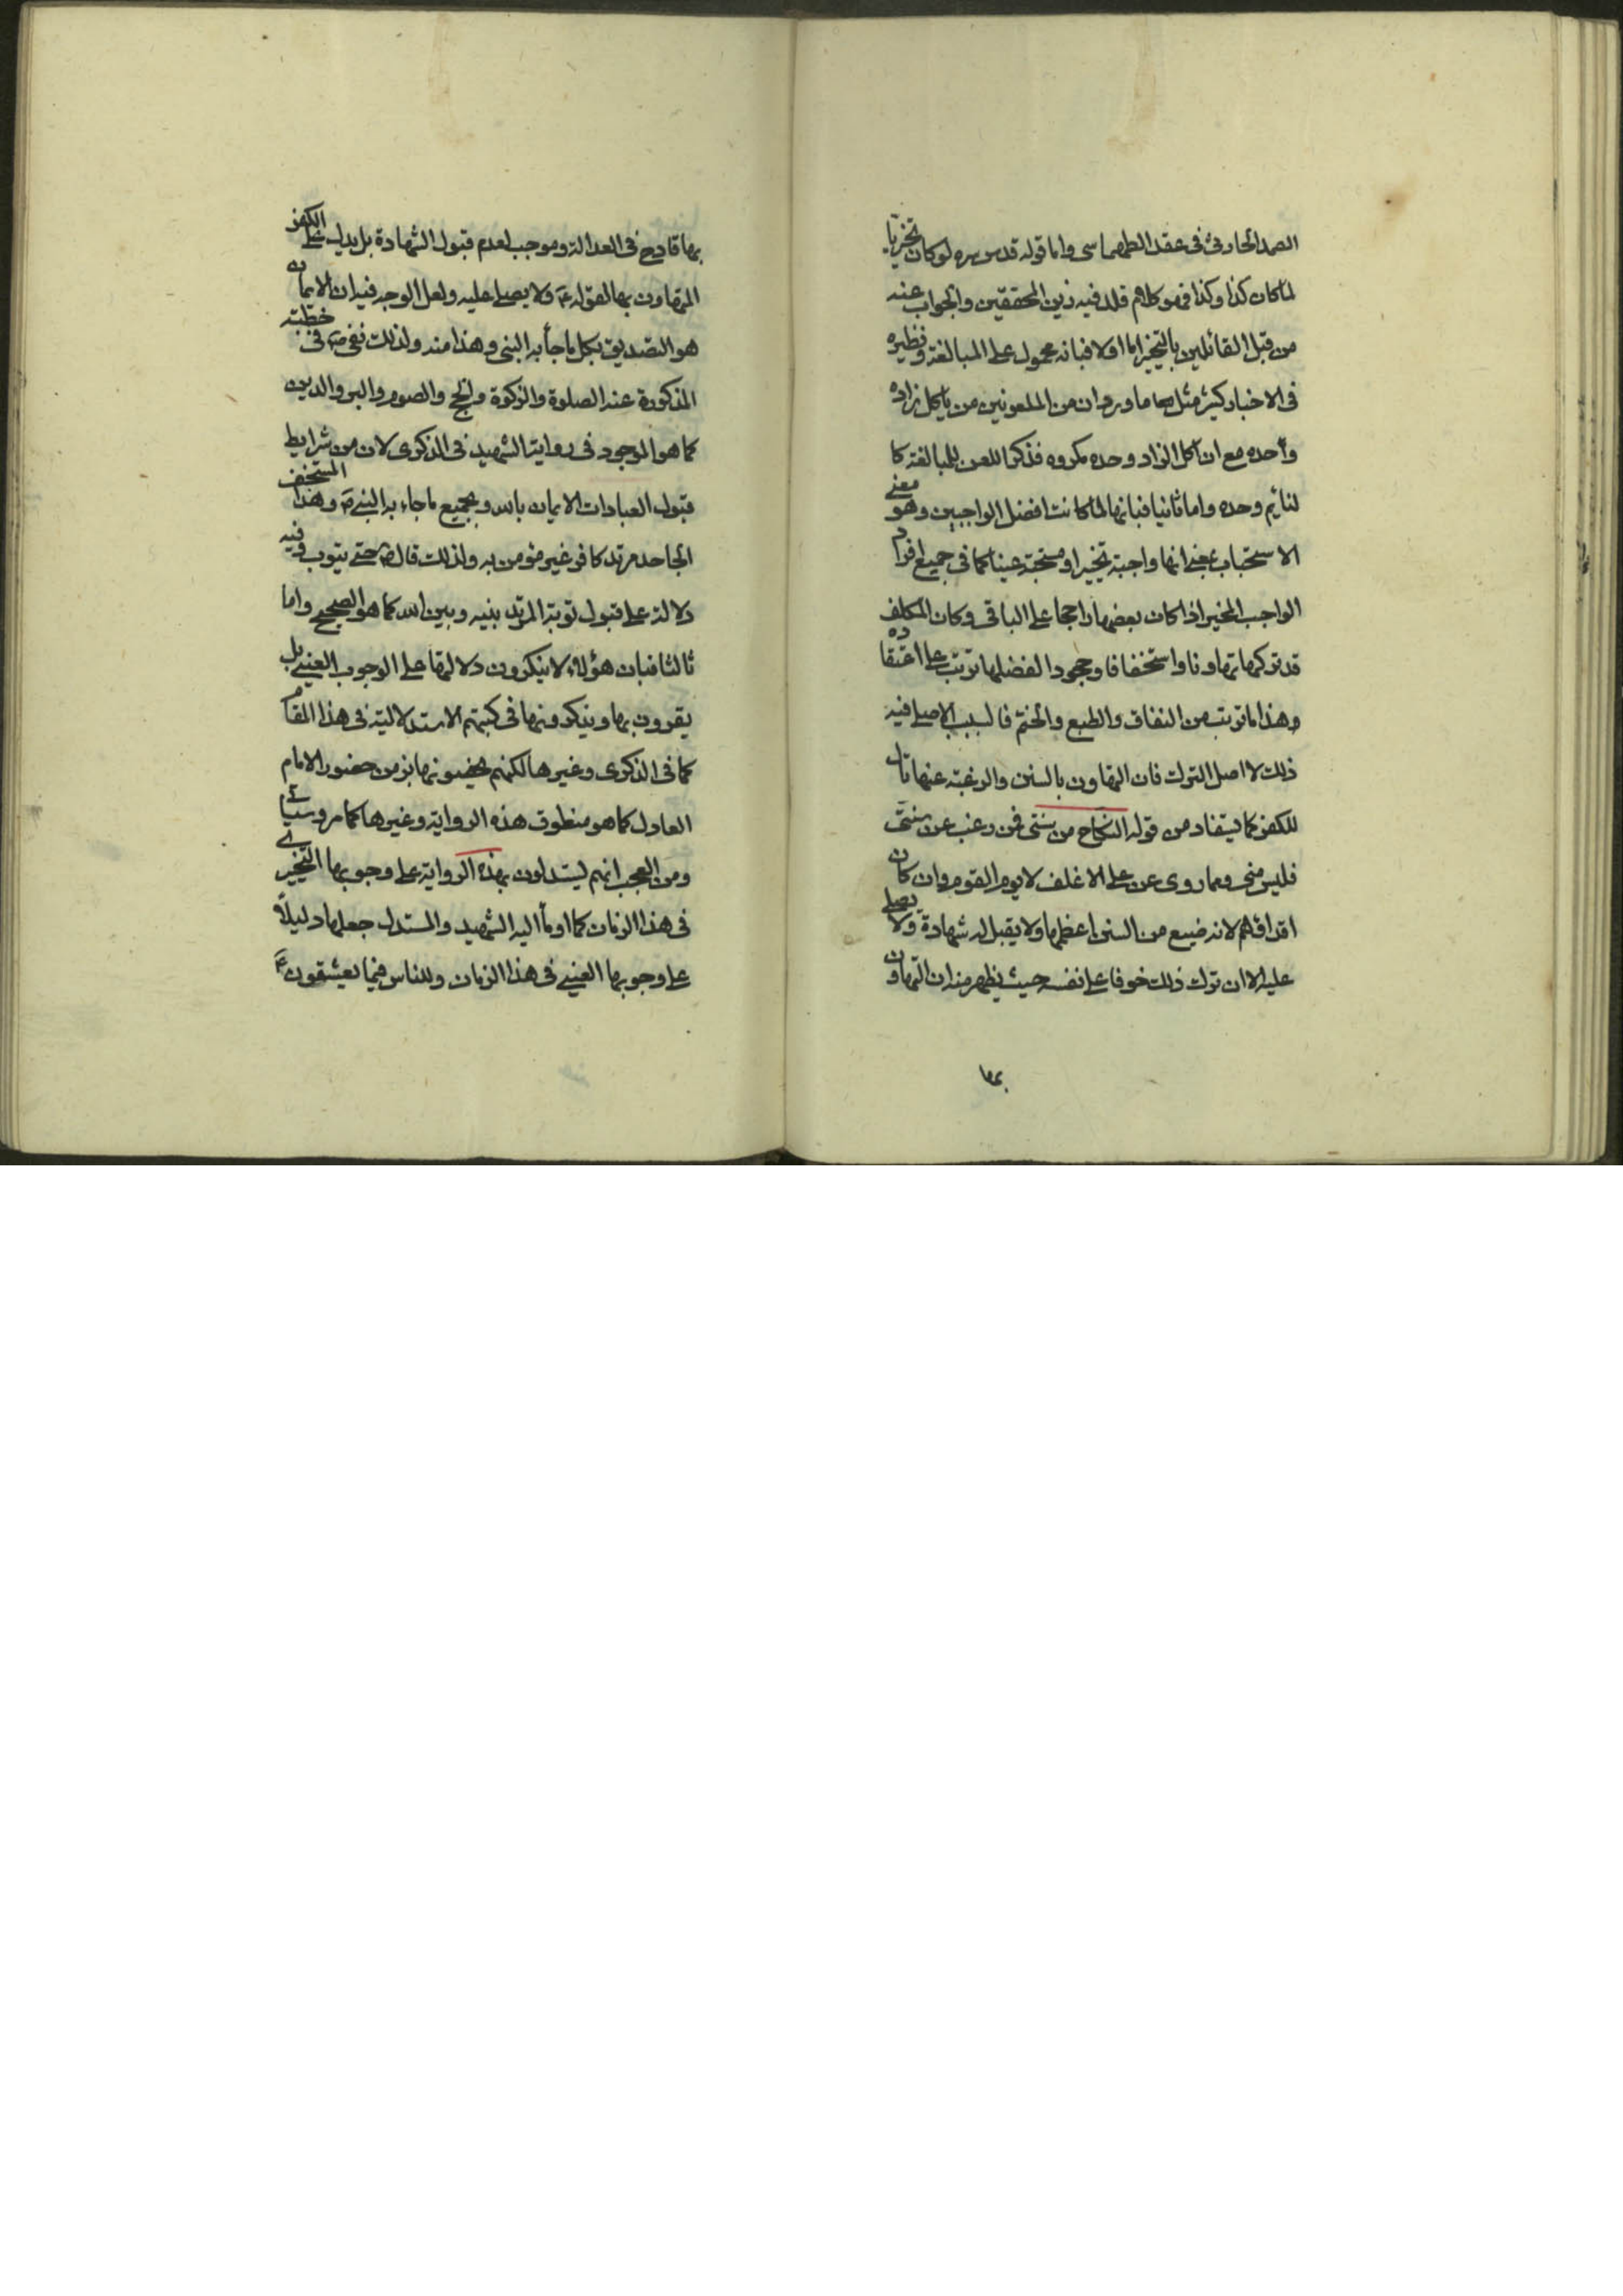 الصمد الحارثي في عقد الطهماسبي واما قوله قدس سره لو كان تخيريا
لما كان كذا وكذا فهو كلام قلد فيه زين المحققين والجواب عنه
من قبل القائلين بالتخيير اما اولا فبانه محمول على المبالغة ونظيره
في الاخبار كثير مثل ما ورد ان من الملعونين من ياكل زاده
وحده مع ان اكل الزاد وحده مكروه فذكر اللعن للمبالغة كا
لنائم وحده واما ثانيا فبانها لما كانت افضل الواجبين وهو معنى
الاستحباب بمعنى انها واجبة تخييرا ومستحبة عينا كما في جميع افراد
الواجب المخير اذا كان بعضها راجحا على الباقي وكان المكلف
قد تركها تهاونا واستخفافا وجحودا لفضلها ترتب على اعتقاده
وهذا ما ترتب من النفاق والطبع والختم فالسبب الاصلي فيه
ذلك لا اصل الترك فان التهاون بالسنن والرغبة عنها تال
للكفر كما يستفاد من قوله النكاح من سنتي فمن رغب عن سنتي
فليس مني ومما روى عن علي الاغلف لا يوم القوم وان كان
اقراهم لانه ضيع من السنن اعظمها ولا يقبل له شهادة ولا يصلى
عليه الا ان ترك ذلك خوفا على نفسه حيث يظهر منه ان التهاون
بها قادح في العدالة وموجب لعدم قبول الشهادة بل يدل على الكفر
المتهاون بها لقوله ع ولا يصلى عليه ولعل الوجه فيه ان الايمان
هو التصديق بكل ما جاء به النبي وهذا منه ولذلك نفى ص في خطبته
المذكورة عنه الصلوة والزكوة والحج والصوم والبر والدين
كما هو الموجود في رواية الشهيد في الذكرى لان من شرايط
قبول العبادات الايمان بالله وبجميع ما جاء به النبي ص وهذا المستخف
الجاحد مرتد كافر غير مؤمن به ولذلك قال ص حتى يتوب وفيه
دلالة على قبول توبة المرتد بينه وبين الله كما هو الصحيح واما
ثالثا فبان هؤلاء لا ينكرون دلالتها على الوجوب العيني بل
يقرون بها ويذكرونها في كتبهم الاستدلالية في هذا المقام
كما في الذكرى وغيرها لكنهم يخصونها بزمن حضور الامام
العادل كما هو منطوق هذه الرواية وغيرها كما مر وسياتي
ومن العجب انهم ليستدلون بهذه الرواية على وجوبها التخييري
في هذا الزمان كما اومأ اليه الشهيد والمستدل جعلها دليلا
على وجوبها العيني في هذا الزمان وللناس فيما يعشقون